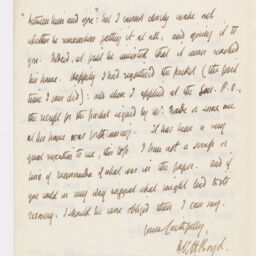 "between him and you": but I cannot clearly make out
whether he remembers getting it at all, and giving it to
you. Indeed, at first he insisted that it never reached
his house. Happily I had registered the packet (the first
time I ever did): and when I applied at the P.O.,
the receipt for the packet signed by Mr. or some one
at his house was forthcoming. It has been a very
great vexation to me, this loss. I have not a scrap or
line of memoranda of what was in the paper. And if
you could in any way suggest what might lead to its
recovery, I should be more obliged than I can say.
Yours faithfully,
Boyd.